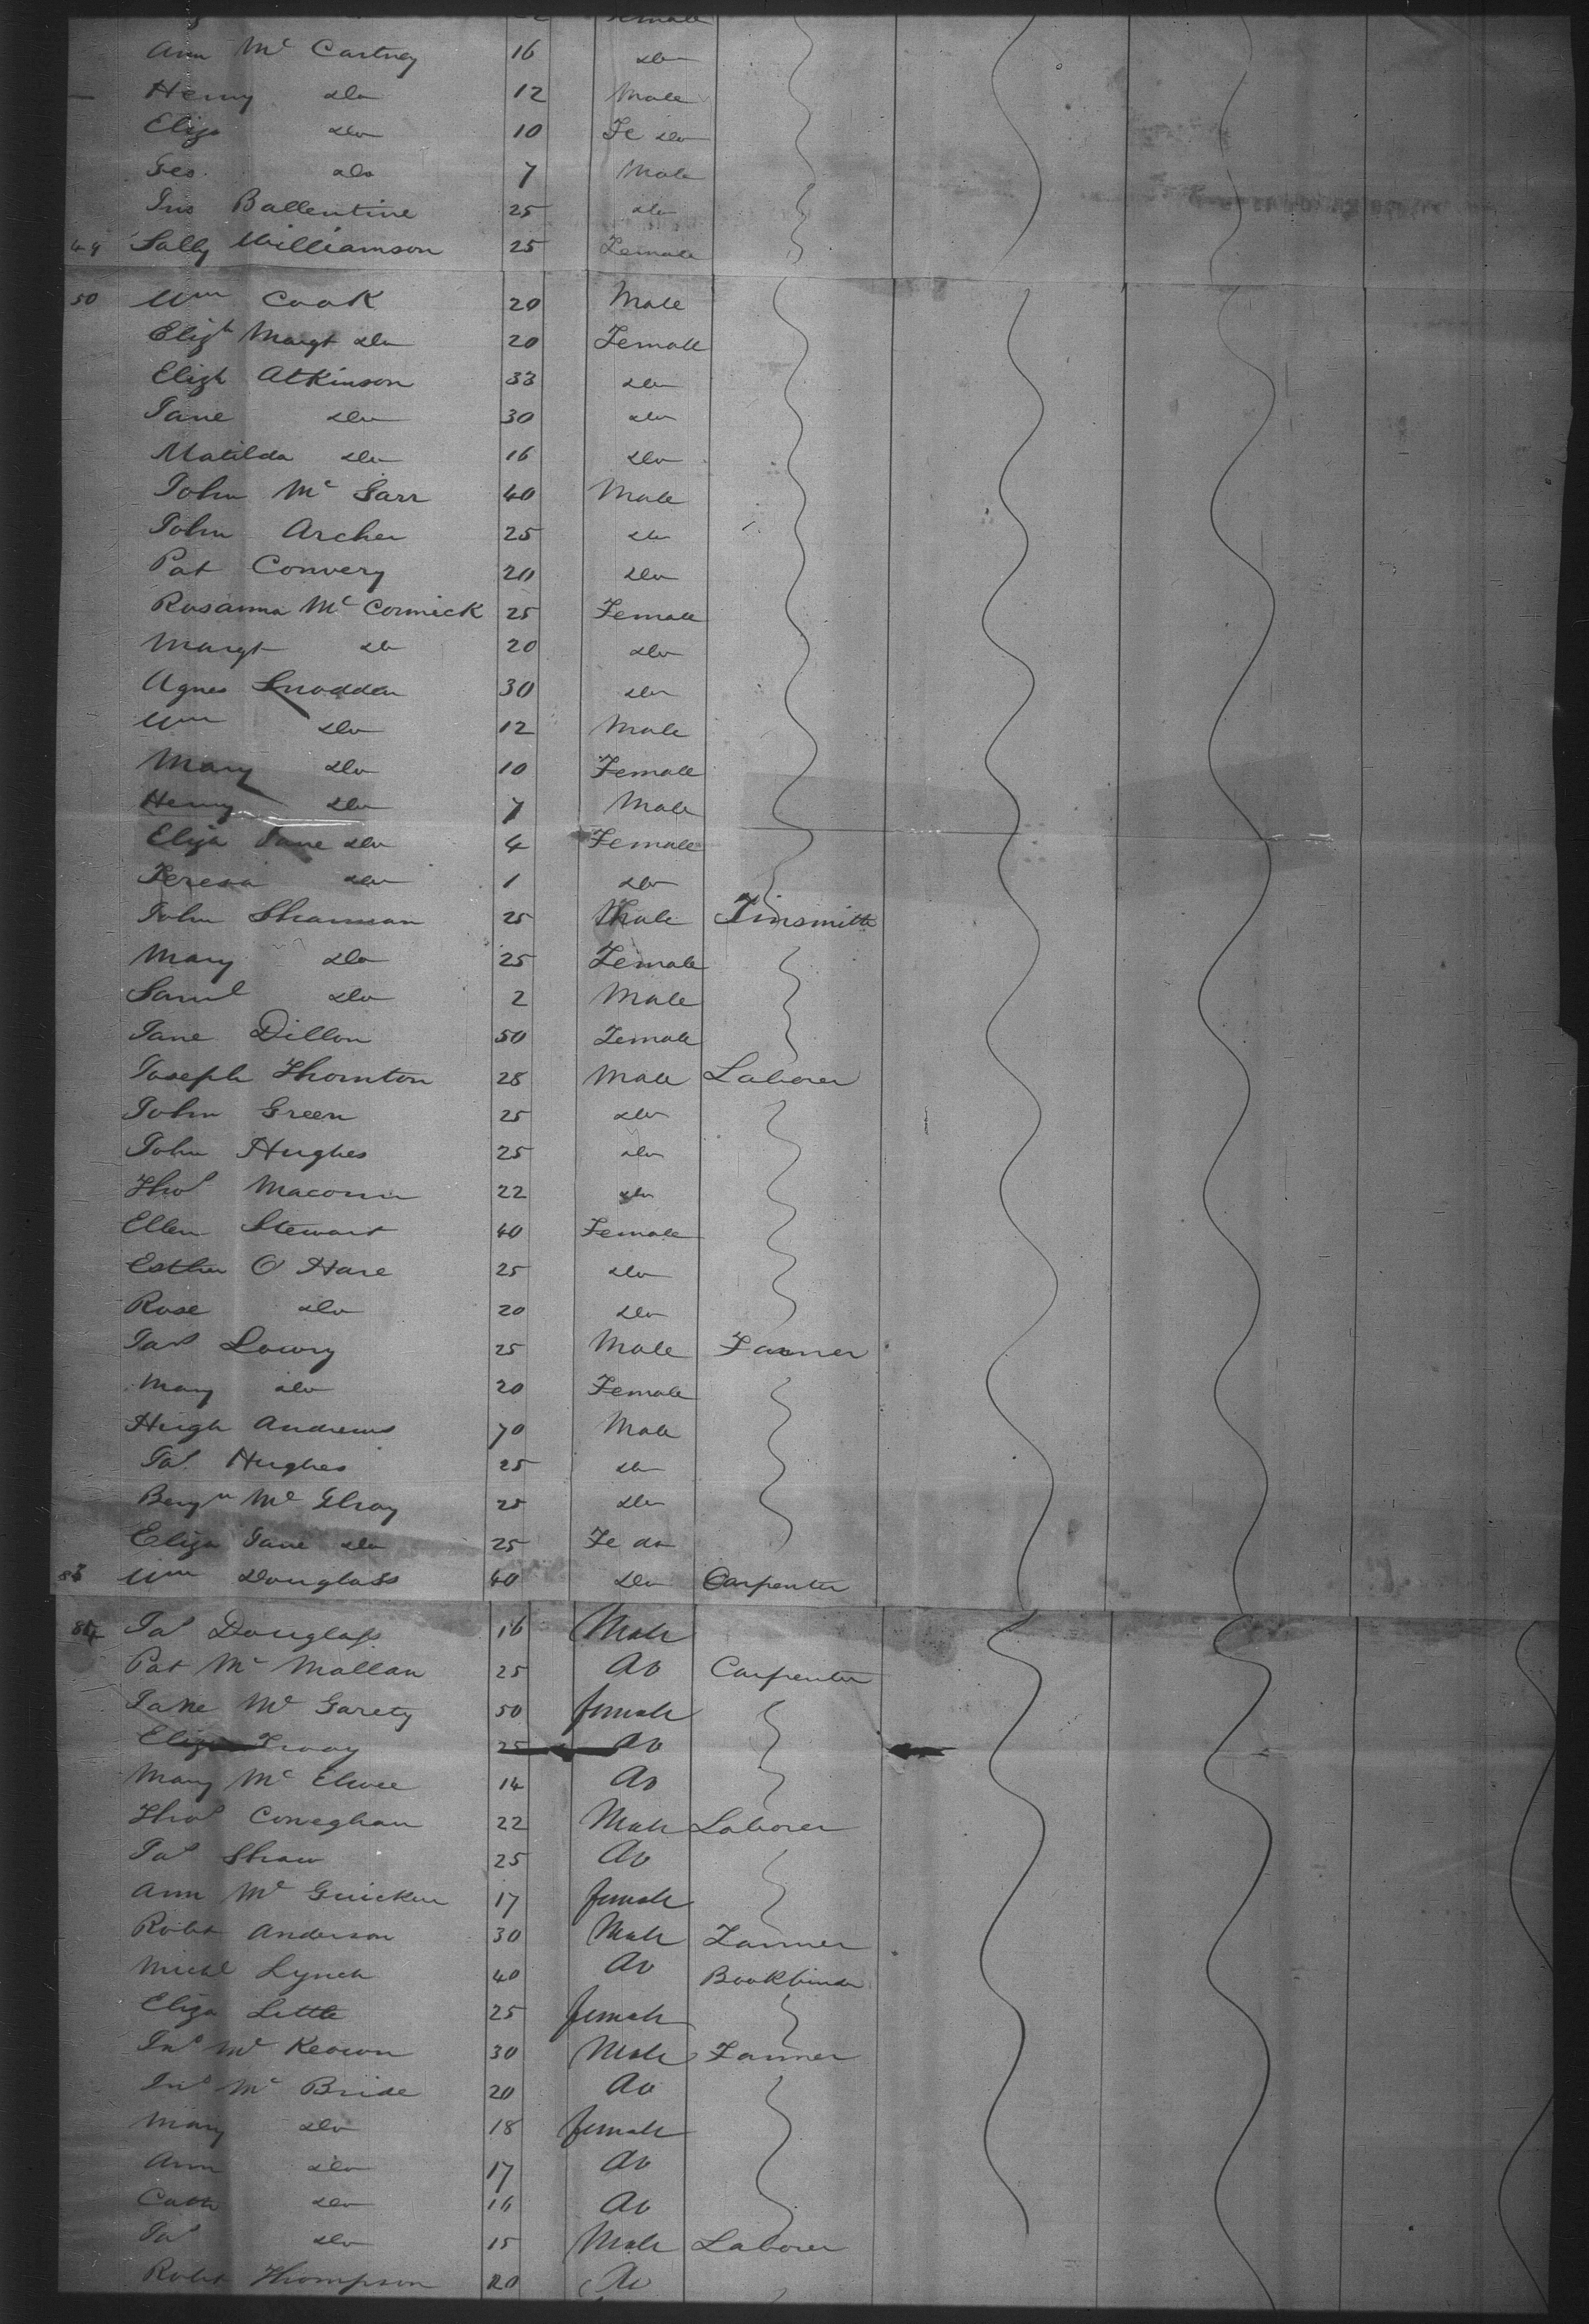 Female
Ann Mc Cartney 16 do
Henry do 12 Male
Eliza do 10 Fe do
Geo. do 7 Male
Jno Ballentine 25 do
49 Sally Williamson 25 Female
50 Wm Cook 20 Male
Elizh Margt do 20 Female
Elizh Atkinson 33 do
Jane do 30 do
Matilda do 16 do
John Mc Garr 40 Male
John Archer 25 do
Pat Convery 20 do
Rosanna Mc Cormick 25 Female
Margt do 20 do
Agnes Snodden 30 do
Wm do 12 Male
Mary do 10 Female
Henry do 7 Male
Eliza Jane do 4 Female
Teresa do 1 do
John Sharman 25 Male Tinsmith
Mary do 25 Female
Saml do 2 Male
Jane Dillon 50 Female
Joseph Thornton 28 Male Laborer
John Green 25 do
John Hughes 25 do
Thos Maconn 22 do
Ellen Stewart 40 Female
Esther O Hare 25 do
Rose do 20 do
Jas Lowry 25 Male Farmer
Mary do 20 Female
Hugh Andrews 70 Male
Jas Hughes 25 do
Benjn Mc Ilroy 25 do
Eliza Jane do 25 Fe do
83 Wm Douglass 40 do Carpenter
84 Jas Douglass 16 Male
Pat Mc Mallan 25 do Carpenter
Jane Mc Garety 50 female
Eliza 25 do
Mary Mc Elwee 14 do
Thos Coneghan 22 Male Laborer
Jas Shaw 25 do
Ann Mc Guicken 17 female
Robt Anderson 30 Male Farmer
Michl Lynch 40 do Bookbinder
Eliza Little 25 female
Jno Mc Keown 30 Male Farmer
Jno Mc Bride 20 do
Mary do 18 female
Ann do 17 do
Cath do 16 do
Jas do 15 Male Laborer
Robt Thompson 20 do